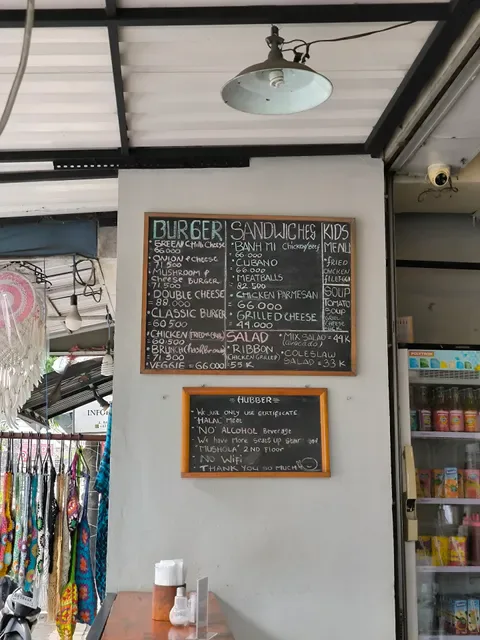 BURGER
GREEN Chilli Cheese
66.000
ONION & Cheese
71.500
MUSHROOM &
CHEESE BURGER
71.500
DOUBLE CHEESE
= 88.000
CLASSIC BURGER
60.500
CHICKEN
60.500
BRUNCH
71.500
VEGGIE = 66.000
SANDWICHES
BANH MI Chicken/Beef
66.000
CUBANO
= 66.000
MEATBALLS
= 82.500
CHICKEN PARMESAN
= 66.000
GRILLED CHEESE
= 49.000
KIDS
MENU
FRIED
CHICKEN
FILLET
SOUP
TOMATO
SOUP
CHEESE
SALAD
RIBBON
(CHICKEN GRILLED)
55 K
MIX SALAD = 49K
COLESLAW
SALAD = 33 K
HUBBER
We are only use certificate
"HALAL" MEAT
"NO" ALCOHOL Beverage
We have more seats up stair and
"MUSHOLA" 2ND FLOOR
NO WiFi
THANK YOU SO MUCH
INFO